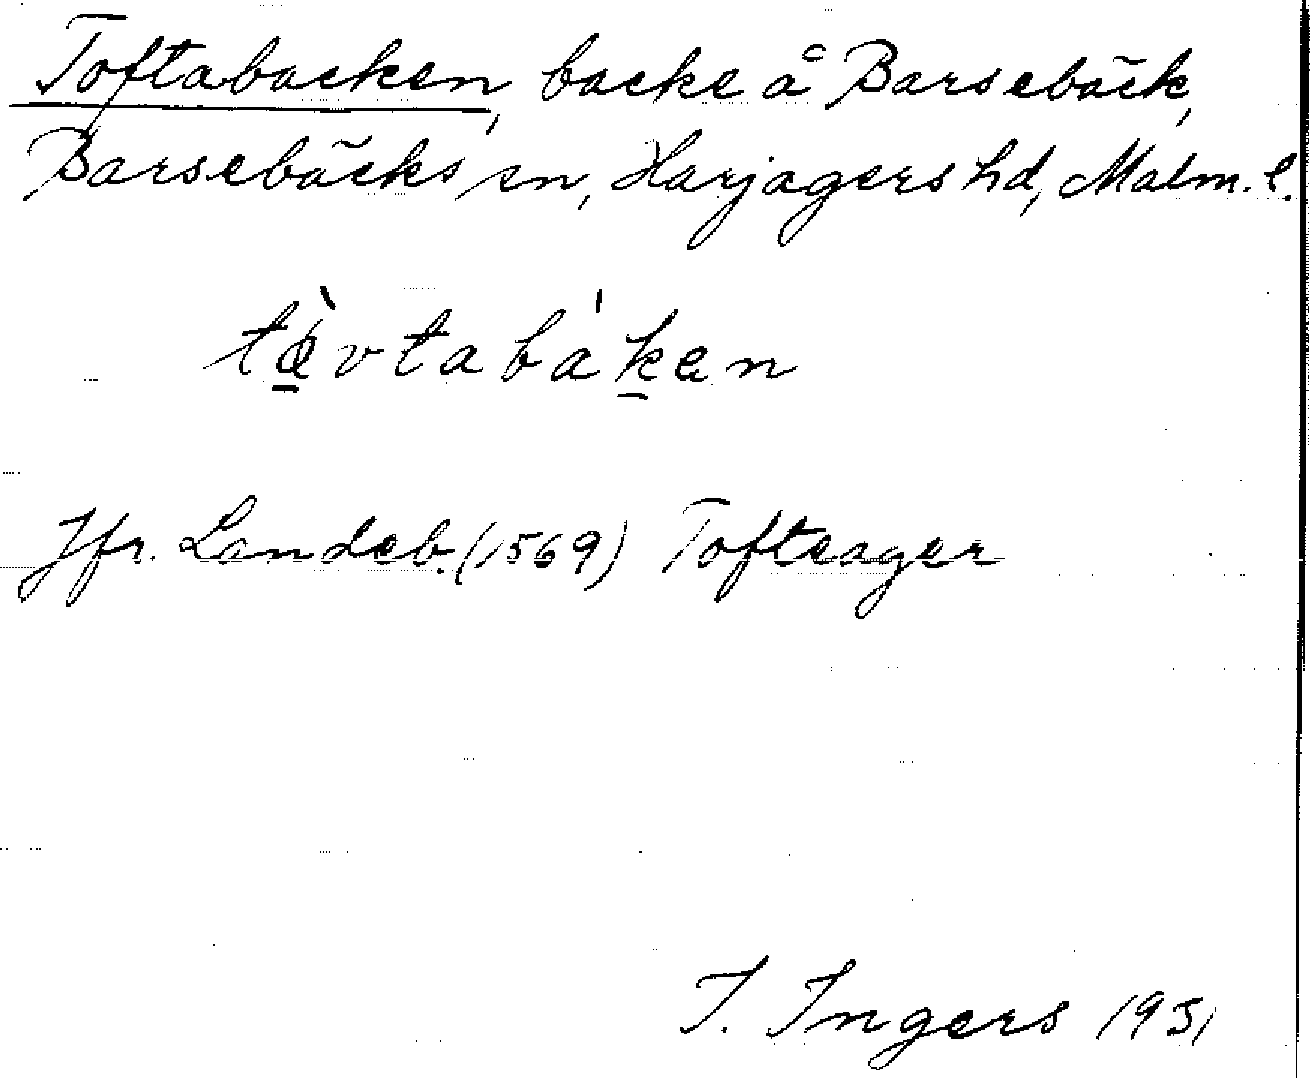 Toftabacken, backe å Barsebäck,
Barsebäcks sn, Harjagers hd, Malm. l.
tòvtabáken
Jfr. Landeb. (1569) Tofteager
I. Ingers 1931